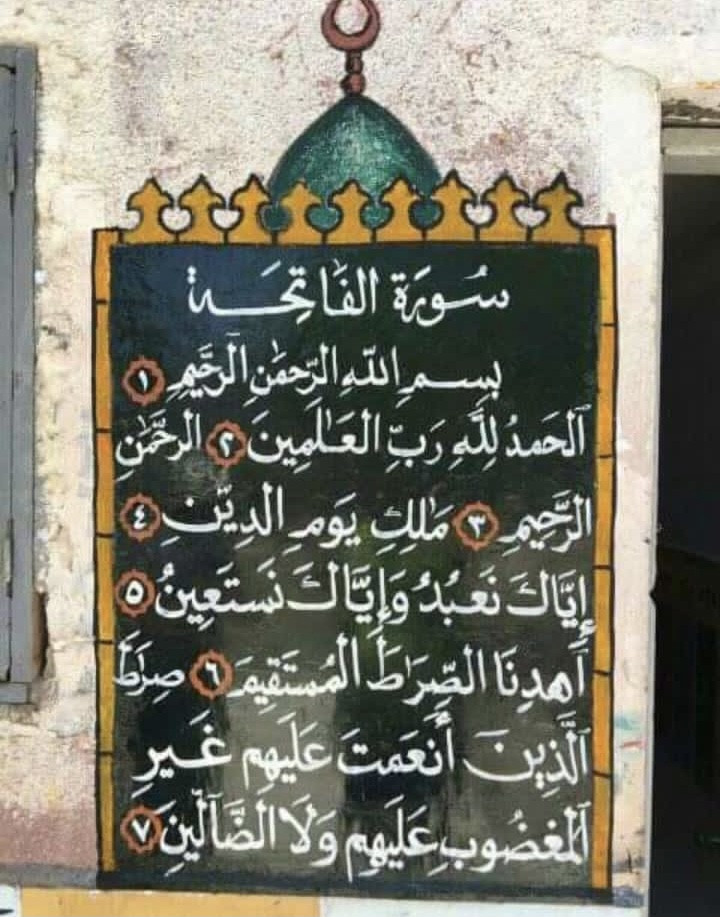 سُورَة الفَاتِحَة
بِسمِ اللَّهِ الرَّحمَٰنِ الرَّحِيمِ ١
اَلحَمدُ لِلَّهِ رَبِّ العَٰلَمِينَ ٢ الرَّحمَٰنِ
الرَّحِيمِ ٣ مَٰلِكِ يَومِ الدِّينِ ٤
إِيَّاكَ نَعبُدُ وَإِيَّاكَ نَستَعِينُ ٥
أهدِنَا الصِّرَٰطَ المُستَقِيمَ ٦ صِرَٰطَ
الَّذِينَ أَنعَمتَ عَلَيهِم غَيرِ
المَغضُوبِ عَلَيهِم وَلَا الضَّآلِّينَ ٧